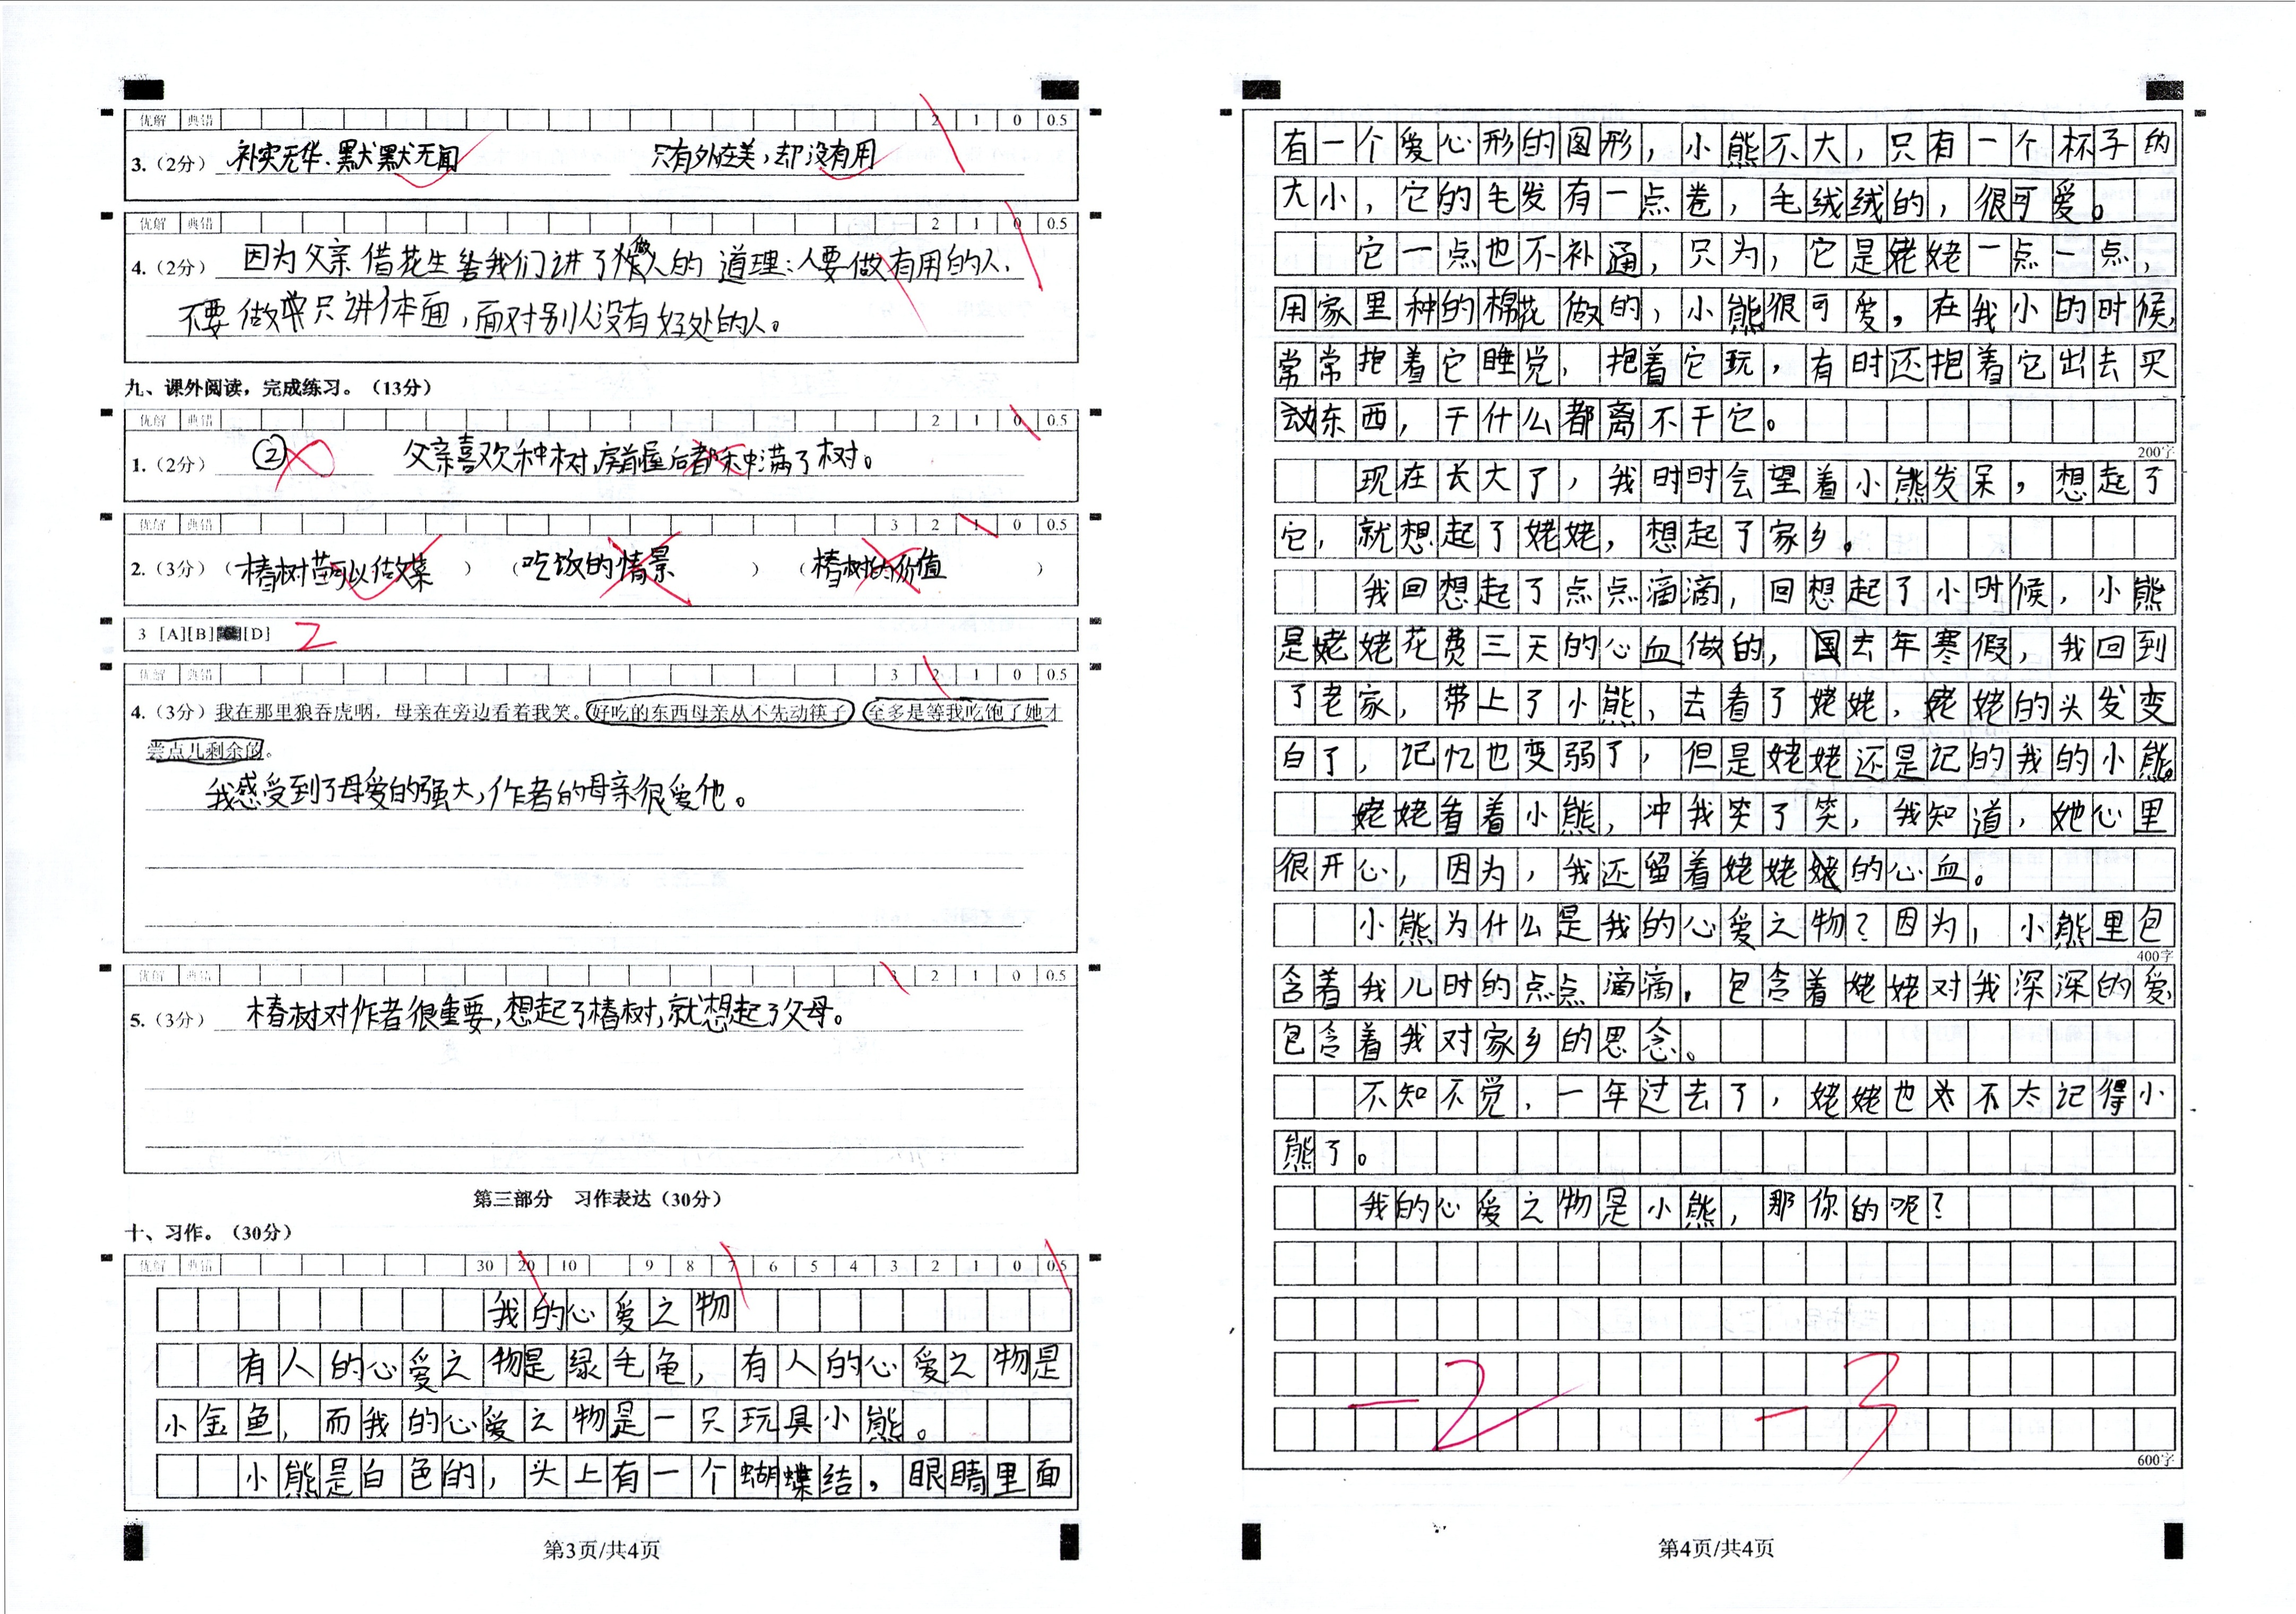 优解 典错 2 1 0 0.5
3.（2分） 补实无华、默默无闻 只有外在美，却没有用
优解 典错 2 1 0 0.5
4.（2分） 因为父亲借花生给我们讲了做人的道理：人要做有用的人，
不要做只讲体面，面对别人没有好处的人。
九、课外阅读，完成练习。（13分）
优解 典错 2 1 0 0.5
1.（2分） ② 父亲喜欢种树，房前屋后都种满了树。
优解 典错 3 2 1 0 0.5
2.（3分）（椿树苗可以做菜）（吃饭的情景）（椿树的价值）
3 [A][B] [D] 2
优解 典错 3 2 1 0 0.5
4.（3分）我在那里狼吞虎咽，母亲在旁边看着我笑。好吃的东西母亲从不先动筷子，至多是等我吃饱了她才
尝点儿剩余的。
我感受到了母爱的强大，作者的母亲很爱他。
优解 典错 3 2 1 0 0.5
5.（3分） 椿树对作者很重要，想起了椿树，就想起了父母。
第三部分 习作表达（30分）
十、习作。（30分）
优解 典错 30 20 10 9 8 7 6 5 4 3 2 1 0 0.5
我的心爱之物
有人的心爱之物是绿毛龟，有人的心爱之物是
小金鱼，而我的心爱之物是一只玩具小熊。
小熊是白色的，头上有一个蝴蝶结，眼睛里面
第3页/共4页
有一个爱心形的图形，小熊不大，只有一个杯子的
大小，它的毛发有一点卷，毛绒绒的，很可爱。
它一点也不补通，只为，它是姥姥一点一点，
用家里种的棉花做的，小熊很可爱，在我小的时候，
常常抱着它睡觉，抱着它玩，有时还抱着它出去买
东西，干什么都离不干它。
200字
现在长大了，我时时会望着小熊发呆，想起了
它，就想起了姥姥，想起了家乡。
我回想起了点点滴滴，回想起了小时候，小熊
是姥姥花费三天的心血做的，去年寒假，我回到
了老家，带上了小熊，去看了姥姥，姥姥的头发变
白了，记忆也变弱了，但是姥姥还是记的我的小熊。
姥姥看着小熊，冲我笑了笑，我知道，她心里
很开心，因为，我还留着姥姥姥的心血。
小熊为什么是我的心爱之物？因为，小熊里包
400字
含着我儿时的点点滴滴，包含着姥姥对我深深的爱，
包含着我对家乡的思念。
不知不觉，一年过去了，姥姥也不太记得小
熊了。
我的心爱之物是小熊，那你的呢？
-2 -3
600字
第4页/共4页